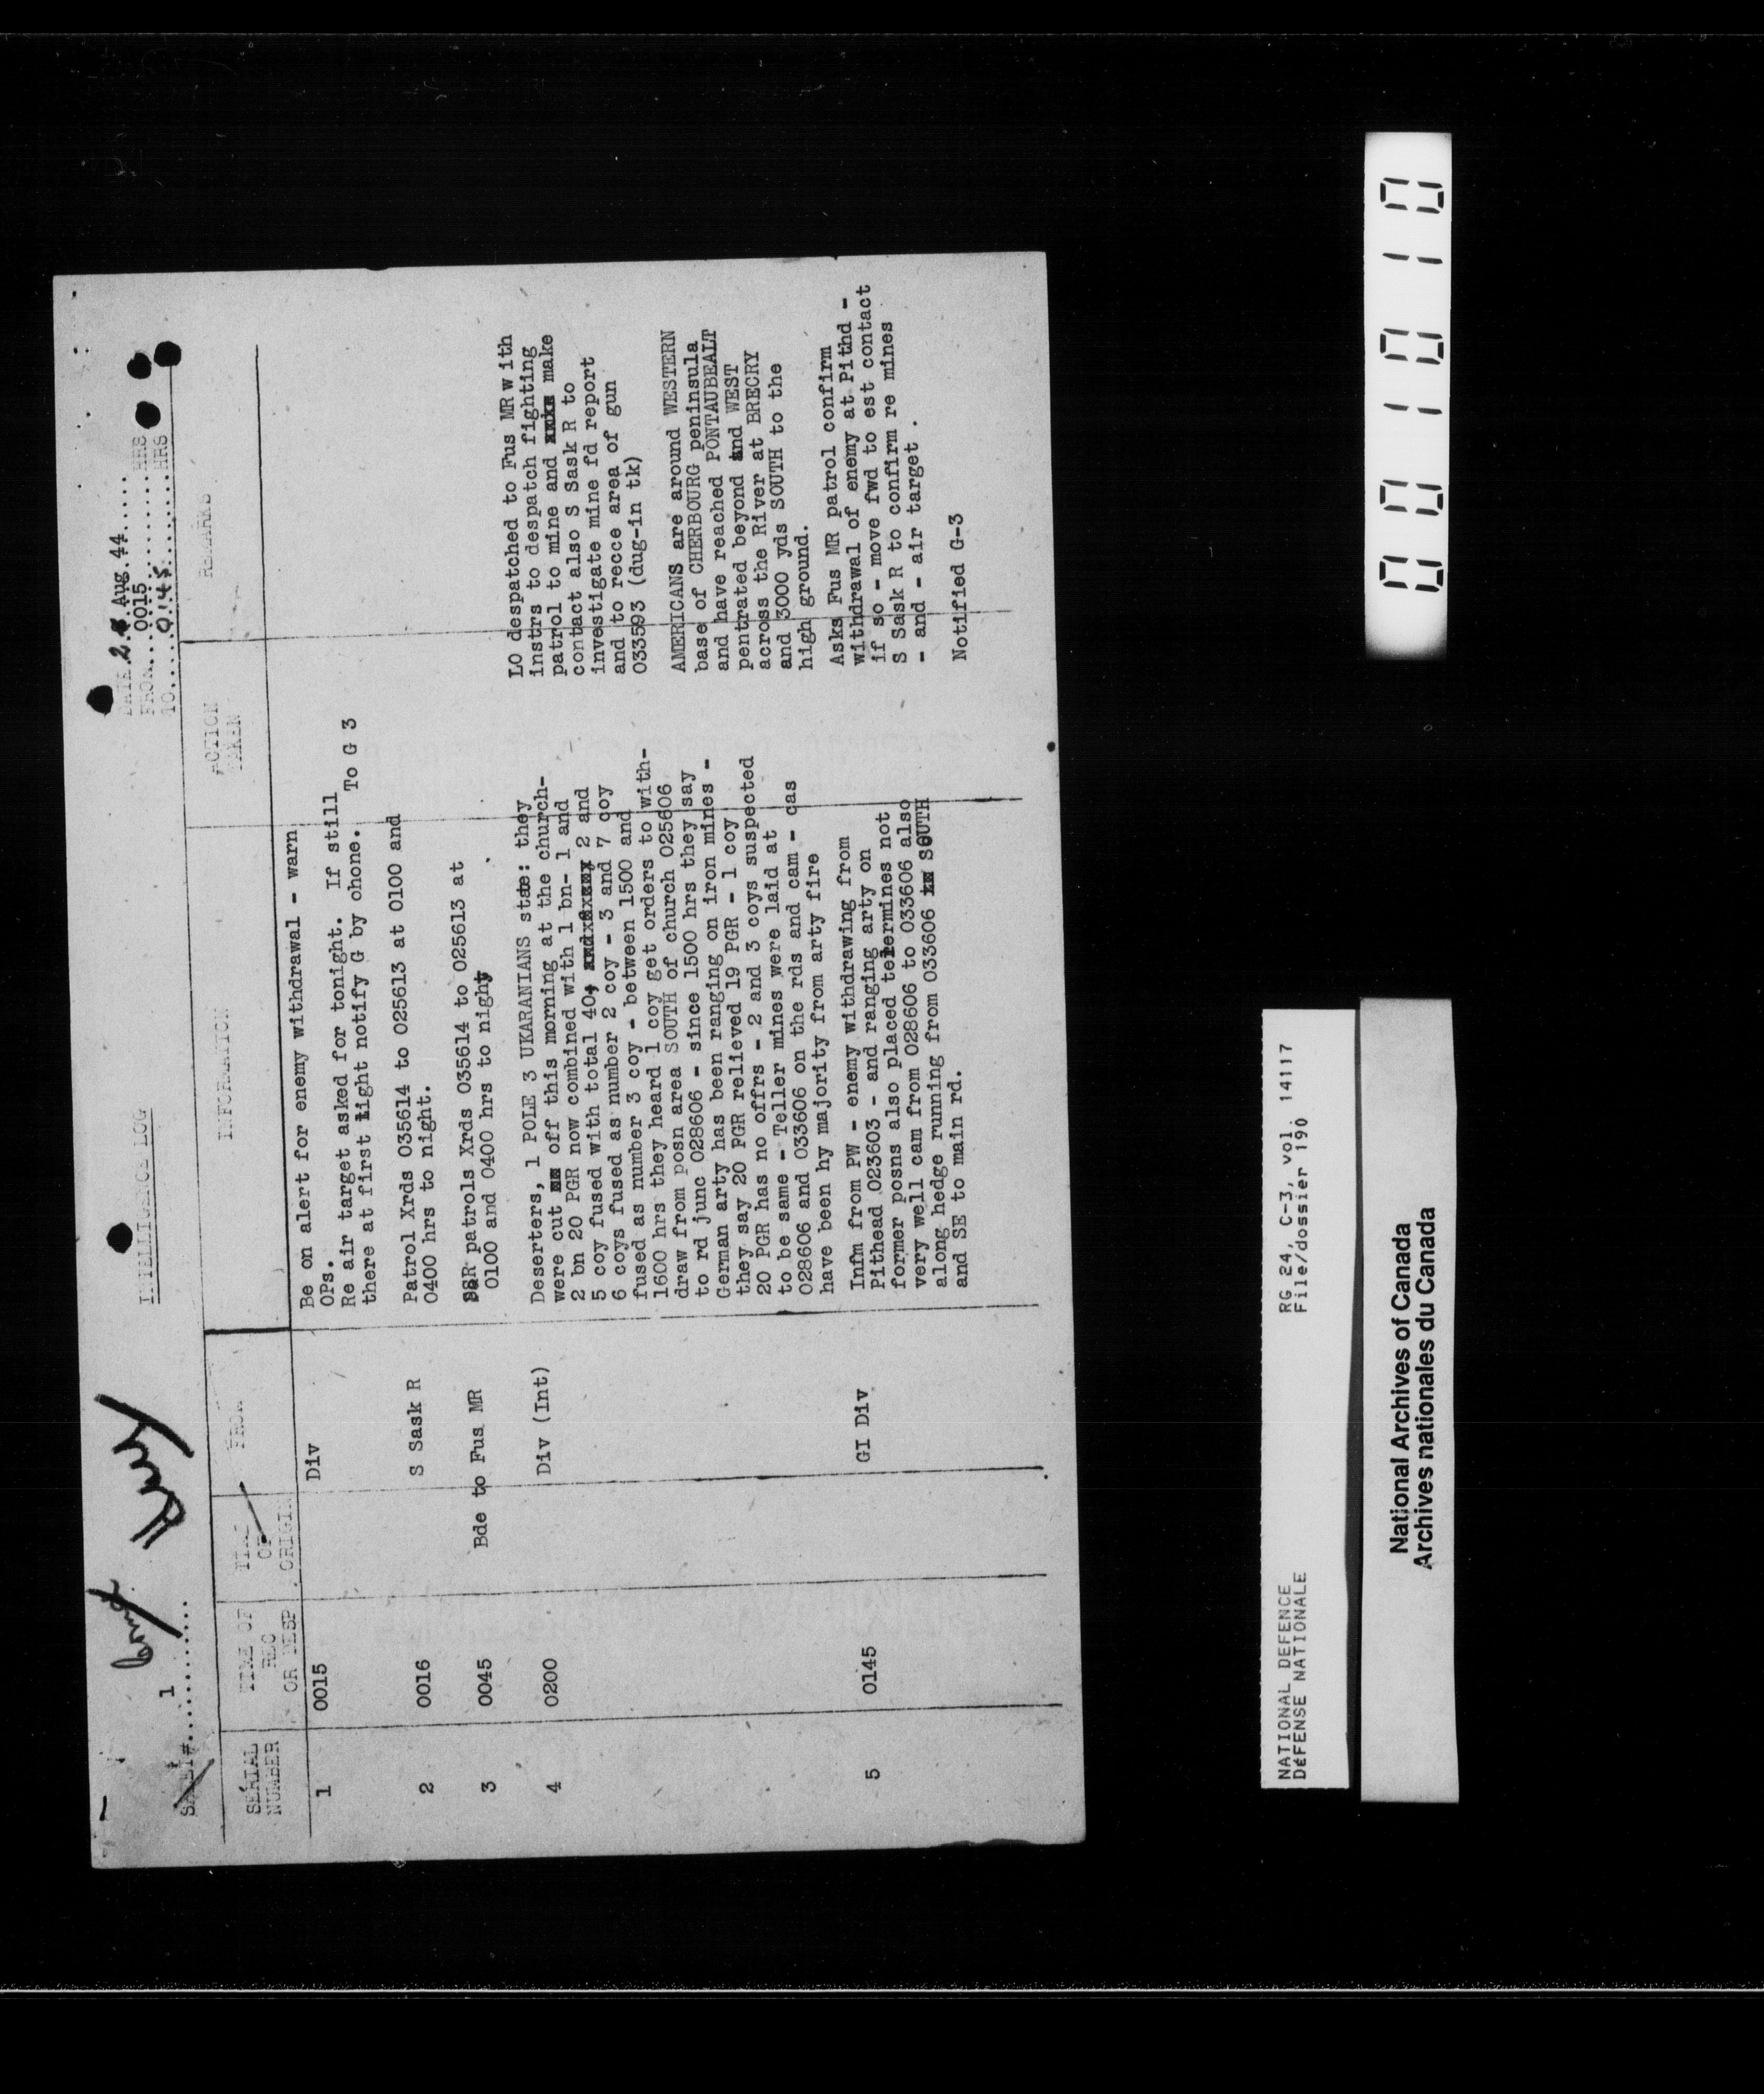 INTELLIGENCE LOG
SHEET#.....1.....
DATE.2.Aug.44.....
FROM....0015.......HRS
TO......0145.......HRS
SERIAL NUMBER
TIME OF REC OR DESP
TIME OF ORIGIN
FROM
INFORMATION
ACTION TAKEN
REMARKS
1
0015
Div
Be on alert for enemy withdrawal - warn
OPs.
Re air target asked for tonight. If still
there at first light notify G by phone.
To G 3
2
0016
S Sask R
Patrol Xrds 035614 to 025613 at 0100 and
0400 hrs to night.
3
0045
Bde to Fus MR
patrols Xrds 035614 to 025613 at
0100 and 0400 hrs to night
4
0200
Div (Int)
Deserters, 1 POLE 3 UKARANIANS state: they
were cut off this morning at the church-
2 bn 20 PGR now combined with 1 bn- 1 and
5 coy fused with total 40, 2 and
6 coys fused as number 2 coy - 3 and 7 coy
fused as number 3 coy - between 1500 and
1600 hrs they heard 1 coy get orders to with-
draw from posn area SOUTH of church 025606
to rd junc 028606 - since 1500 hrs they say
German arty has been ranging on iron mines -
they say 20 PGR relieved 19 PGR - 1 coy
20 PGR has no offrs - 2 and 3 coys suspected
to be same - Teller mines were laid at
028606 and 033606 on the rds and cam - cas
have been hy majority from arty fire
LO despatched to Fus MR w ith
instrs to despatch fighting
patrol to mine and make
contact also S Sask R to
investigate mine fd report
and to recce area of gun
033593 (dug-in tk)
AMERICANS are around WESTERN
base of CHERBOURG peninsula
and have reached PONTAUBEALT
pentrated beyond and WEST
across the River at BRECRY
and 3000 yds SOUTH to the
high ground.
5
0145
GI Div
Infm from PW - enemy withdrawing from
Pithead 023603 - and ranging arty on
former posns also placed telermines not
very well cam from 028606 to 033606 also
along hedge running from 033606 SOUTH
and SE to main rd.
Asks Fus MR patrol confirm
withdrawal of enemy at Pithd -
if so - move fwd to est contact
S Sask R to confirm re mines
- and - air target .
Notified G-3
0 0 1 0 1 0
NATIONAL DEFENCE
DÉFENSE NATIONALE
RG 24, C-3, vol. 14117
File/dossier 190
National Archives of Canada
Archives nationales du Canada